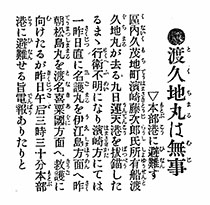 ◎渡久地丸は無事
▽本部港に避難す
區内久茂地町濱崎藤次郎氏所有船渡
久地丸が去る九日運天港を拔錨した
るまゝ行衛不明になり濱崎方にては
一昨日直に名護丸を伊江島方面へ昨
朝松島丸を渡名喜粟國方面へ救護に
向けたるが昨日午后三時三十分本部
港に避難せる旨電報ありたりと